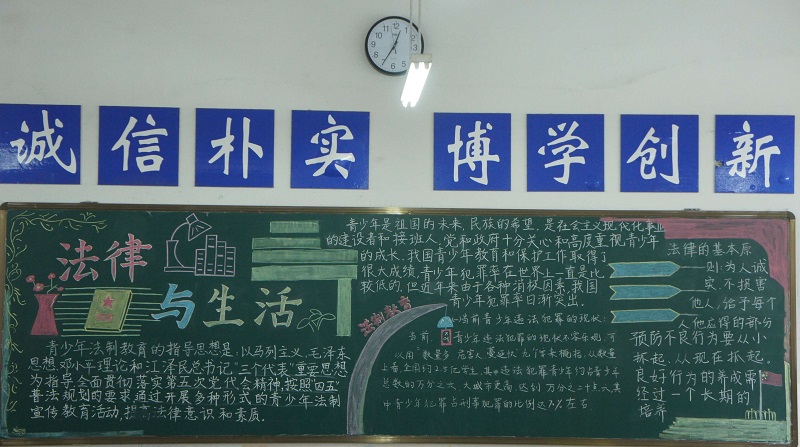 诚信朴实 博学创新
法律
与生活
青少年法制教育的指导思想是:以马列主义、毛泽东
思想邓小平理论和江泽民总书记"三个代表"重要思想
为指导全面贯彻落实第五次党代会精神,按照"四五"
普法规划的要求通过开展多种形式的青少年法制
宣传教育活动,提高法律意识和素质。
青少年是祖国的未来,民族的希望,是社会主义现代化事业
的建设者和接班人,党和政府十分关心和高度重视青少年
的成长,我国青少年教育和保护工作取得了
很大成绩,青少年犯罪率在世界上一直是比
较低的,但近年来由于各种消极因素,我国
青少年犯罪率日渐突出。
法制教育
当前青少年违法犯罪的现状:
当前,青少年违法犯罪的现状不容乐观,可
以用"数量多、危害大、蔓延快、
总数的
青少年犯罪占刑事犯罪的比例达7%左右
法律的基本原
则:为人诚
实,不损害
他人,给予每个
人他应得的部分
预防不良行为要从小
抓起,从现在抓起。
良好行为的养成需
经过一个长期的
培养